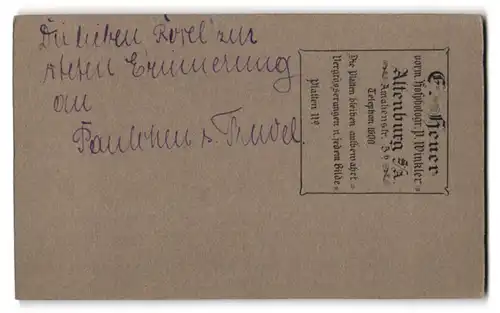 Der lieben Rosel zur
steten Erinnerung
an
Paulchen u. Trudel.
E. Heuer
vorm. Hofphotogr. P. Winkler
Altenburg S/A.
Amalienstr.
Telephon 1600
Die Platten bleiben aufbewahrt
Vergrösserungen n. jedem Bilde
Platten Nº